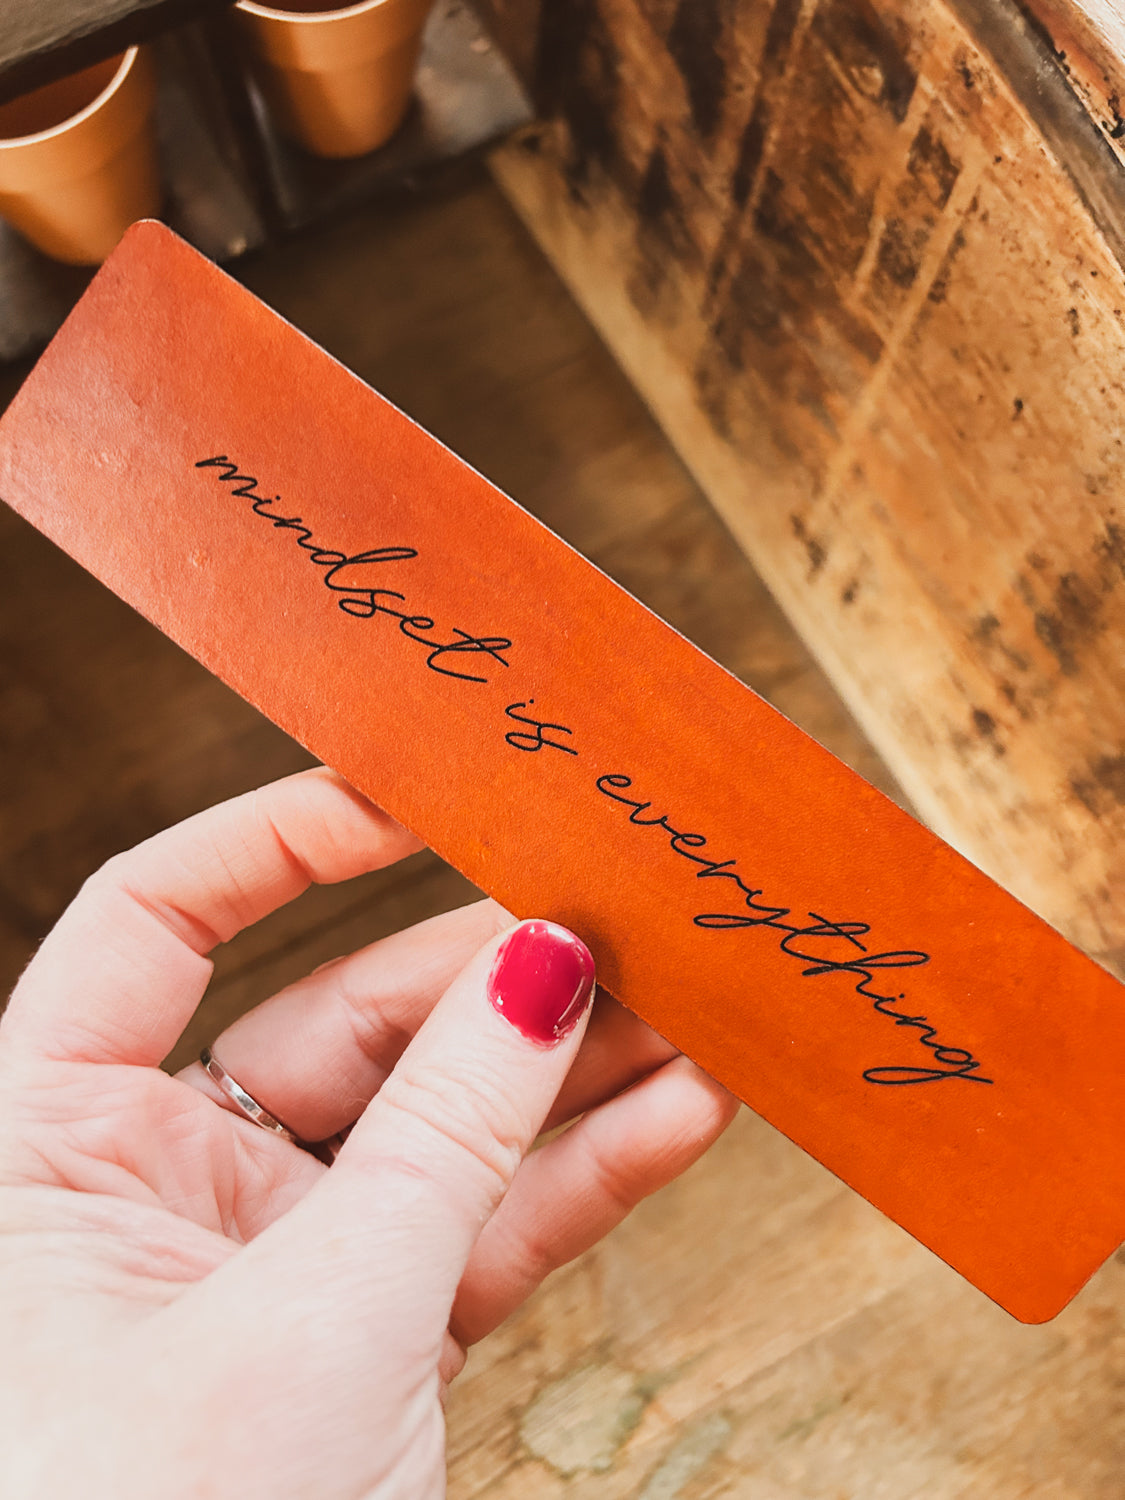 mindset is everything